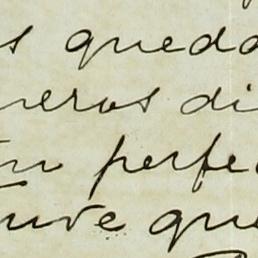 s queda
neros di
en perfec
tuve que